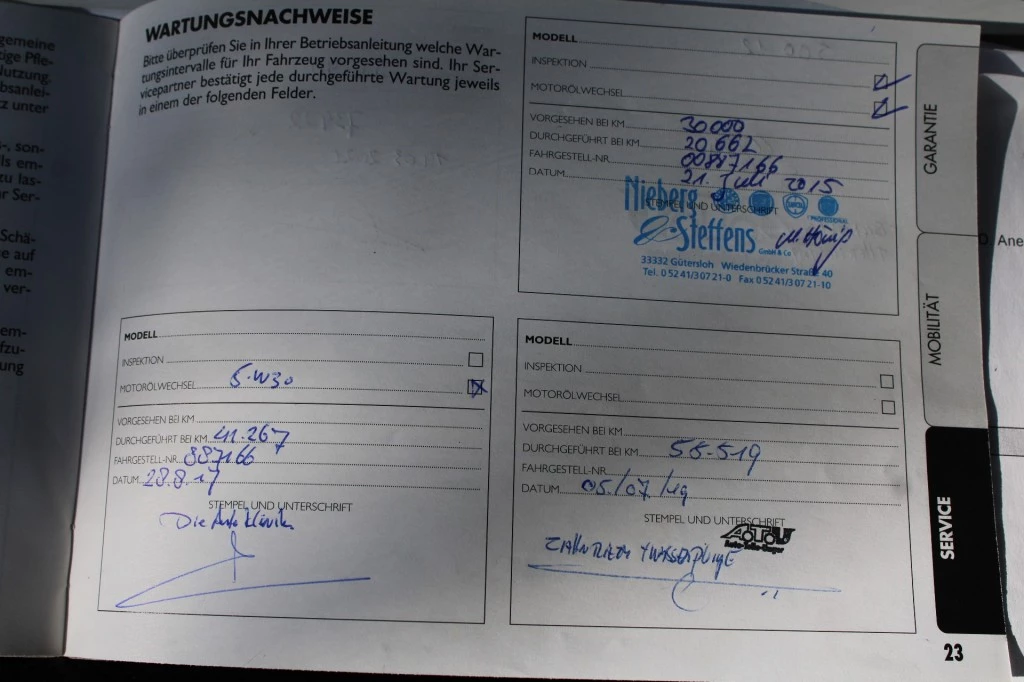 gemeine
tige Pfle-
lutzung.
bsanlei-
z unter
-, son-
lls em-
tu las-
r Ser-
Schä-
e auf
em-
ver-
em-
fzu-
ung
WARTUNGSNACHWEISE
Bitte überprüfen Sie in Ihrer Betriebsanleitung welche War-
tungsintervalle für Ihr Fahrzeug vorgesehen sind. Ihr Ser-
vicepartner bestätigt jede durchgeführte Wartung jeweils
in einem der folgenden Felder.
MODELL
INSPEKTION
MOTORÖLWECHSEL
VORGESEHEN BEI KM 30000
DURCHGEFÜHRT BEI KM 20 662
FAHRGESTELL-NR. 00887166
DATUM 21. Juli 2015
STEMPEL UND UNTERSCHRIFT
Nieberg
& Steffens GmbH & Co
33332 Gütersloh Wiedenbrücker Straße 40
Tel. 0 52 41/3 07 21-0 Fax 0 52 41/3 07 21-10
MODELL
INSPEKTION
MOTORÖLWECHSEL 5-W30
VORGESEHEN BEI KM
DURCHGEFÜHRT BEI KM 41.267
FAHRGESTELL-NR. 887166
DATUM 28.8.17
STEMPEL UND UNTERSCHRIFT
Die Auto Klinik
MODELL
INSPEKTION
MOTORÖLWECHSEL
VORGESEHEN BEI KM
DURCHGEFÜHRT BEI KM 55-519
FAHRGESTELL-NR.
DATUM 05/07/19
STEMPEL UND UNTERSCHRIFT
A.T.U
GARANTIE
MOBILITÄT
SERVICE
Ane
23